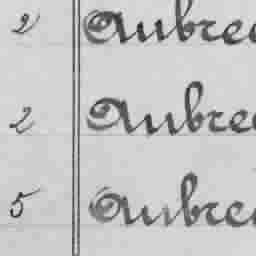 2 Aubre
2 Aubre
5 Aubre